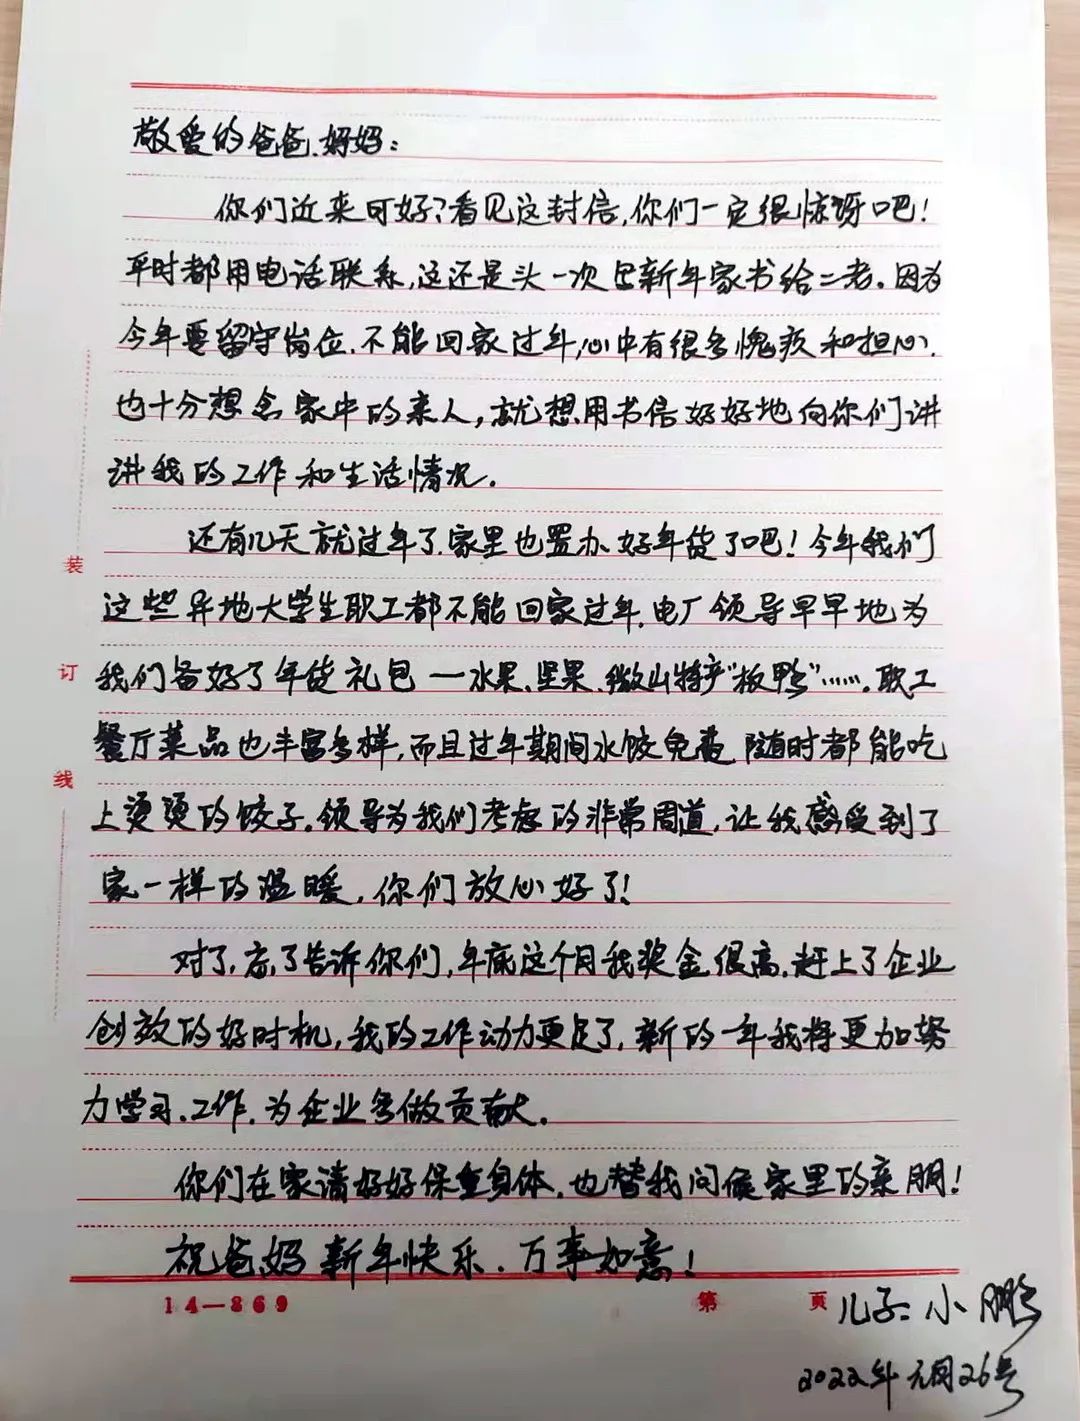 敬爱的爸爸、妈妈：
你们近来可好？看见这封信，你们一定很惊讶吧！
平时都用电话联系，这还是头一次写新年家书给二老。因为
今年要留守岗位，不能回家过年，心中有很多愧疚和担心，
也十分想念家中的亲人，就想用书信好好地向你们讲
讲我的工作和生活情况。
还有几天就过年了，家里也置办好年货了吧！今年我们
这些异地大学生职工都不能回家过年，电厂领导早早地为
我们备好了年货礼包—水果、坚果、微山特产“板鸭”……。职工
餐厅菜品也丰富多样，而且过年期间水饺免费，随时都能吃
上烫烫的饺子。领导为我们考虑的非常周道，让我感受到了
家一样的温暖，你们放心好了！
对了，忘了告诉你们，年底这个月我奖金很高，赶上了企业
创效的好时机，我的工作动力更足了，新的一年我将更加努
力学习、工作，为企业多做贡献。
你们在家请好好保重身体，也替我问候家里的亲朋！
祝爸妈新年快乐、万事如意！
装
订
线
14—869
第 页
儿子：小鹏
2022年元月26号